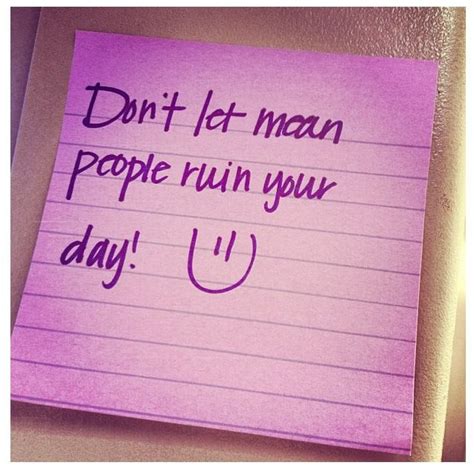 Don't let mean
people ruin your
day!